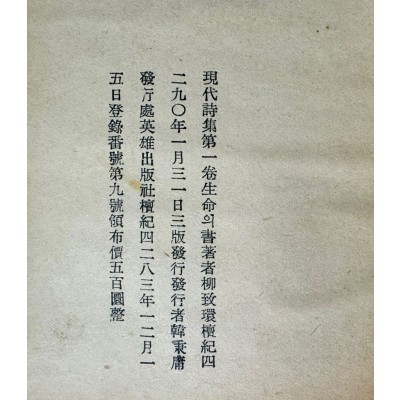 現代詩集第一卷生命의書著者柳致環檀紀四
二九〇年一月三一日三版發行發行者韓秉庸
發行處英雄出版社檀紀四二八三年一二月一
五日登錄番號第九號頒布價五百圜整